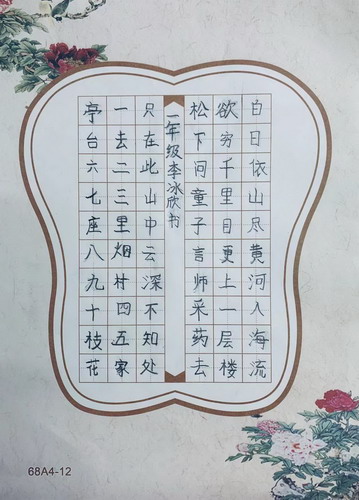 白日依山尽黄河入海流
欲穷千里目更上一层楼
松下问童子言师采药去
一年级李冰欣书
只在此山中云深不知处
一去二三里烟村四五家
亭台六七座八九十枝花
68A4-12